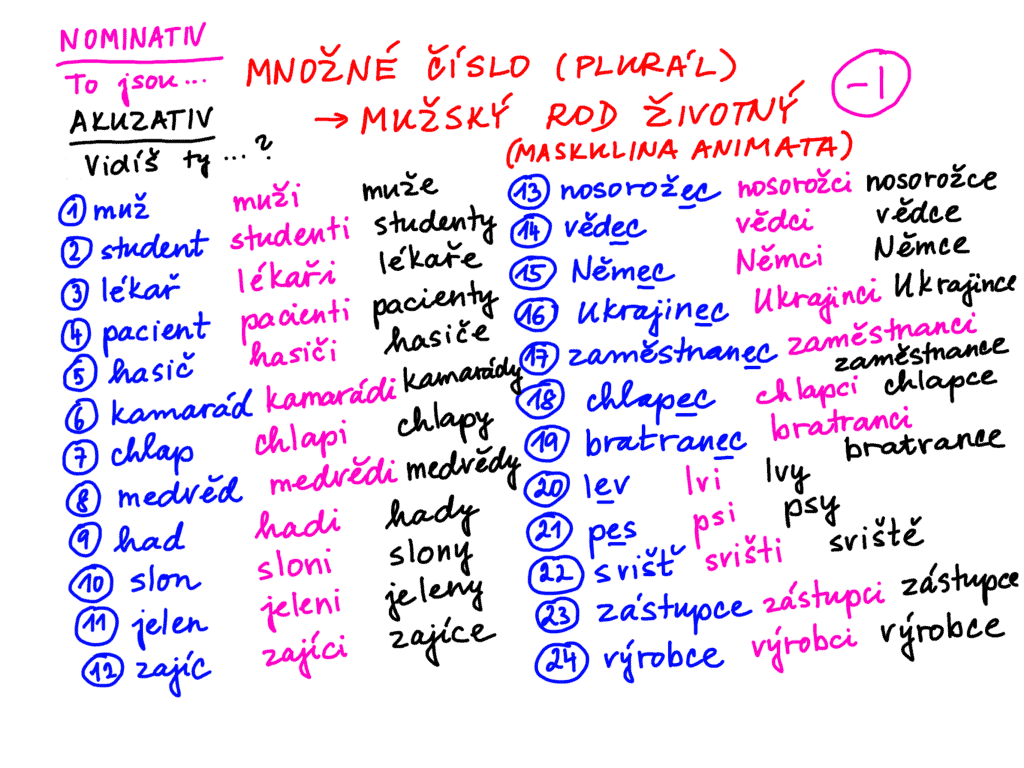 NOMINATIV
To jsou...
AKUZATIV
Vidíš ty ...?
MNOŽNÉ ČÍSLO (PLURÁL)
→ MUŽSKÝ ROD ŽIVOTNÝ
(MASKULINA ANIMATA)
-1
1 muž muži muže
2 student studenti studenty
3 lékař lékaři lékaře
4 pacient pacienti pacienty
5 hasič hasiči hasiče
6 kamarád kamarádi kamarády
7 chlap chlapi chlapy
8 medvěd medvědi medvědy
9 had hadi hady
10 slon sloni slony
11 jelen jeleni jeleny
12 zajíc zajíci zajíce
13 nosorožec nosorožci nosorožce
14 vědec vědci vědce
15 Němec Němci Němce
16 Ukrajinec Ukrajinci Ukrajince
17 zaměstnanec zaměstnanci zaměstnance
18 chlapec chlapci chlapce
19 bratranec bratranci bratrance
20 lev lvi lvy
21 pes psi psy
22 svišť svišti sviště
23 zástupce zástupci zástupce
24 výrobce výrobci výrobce